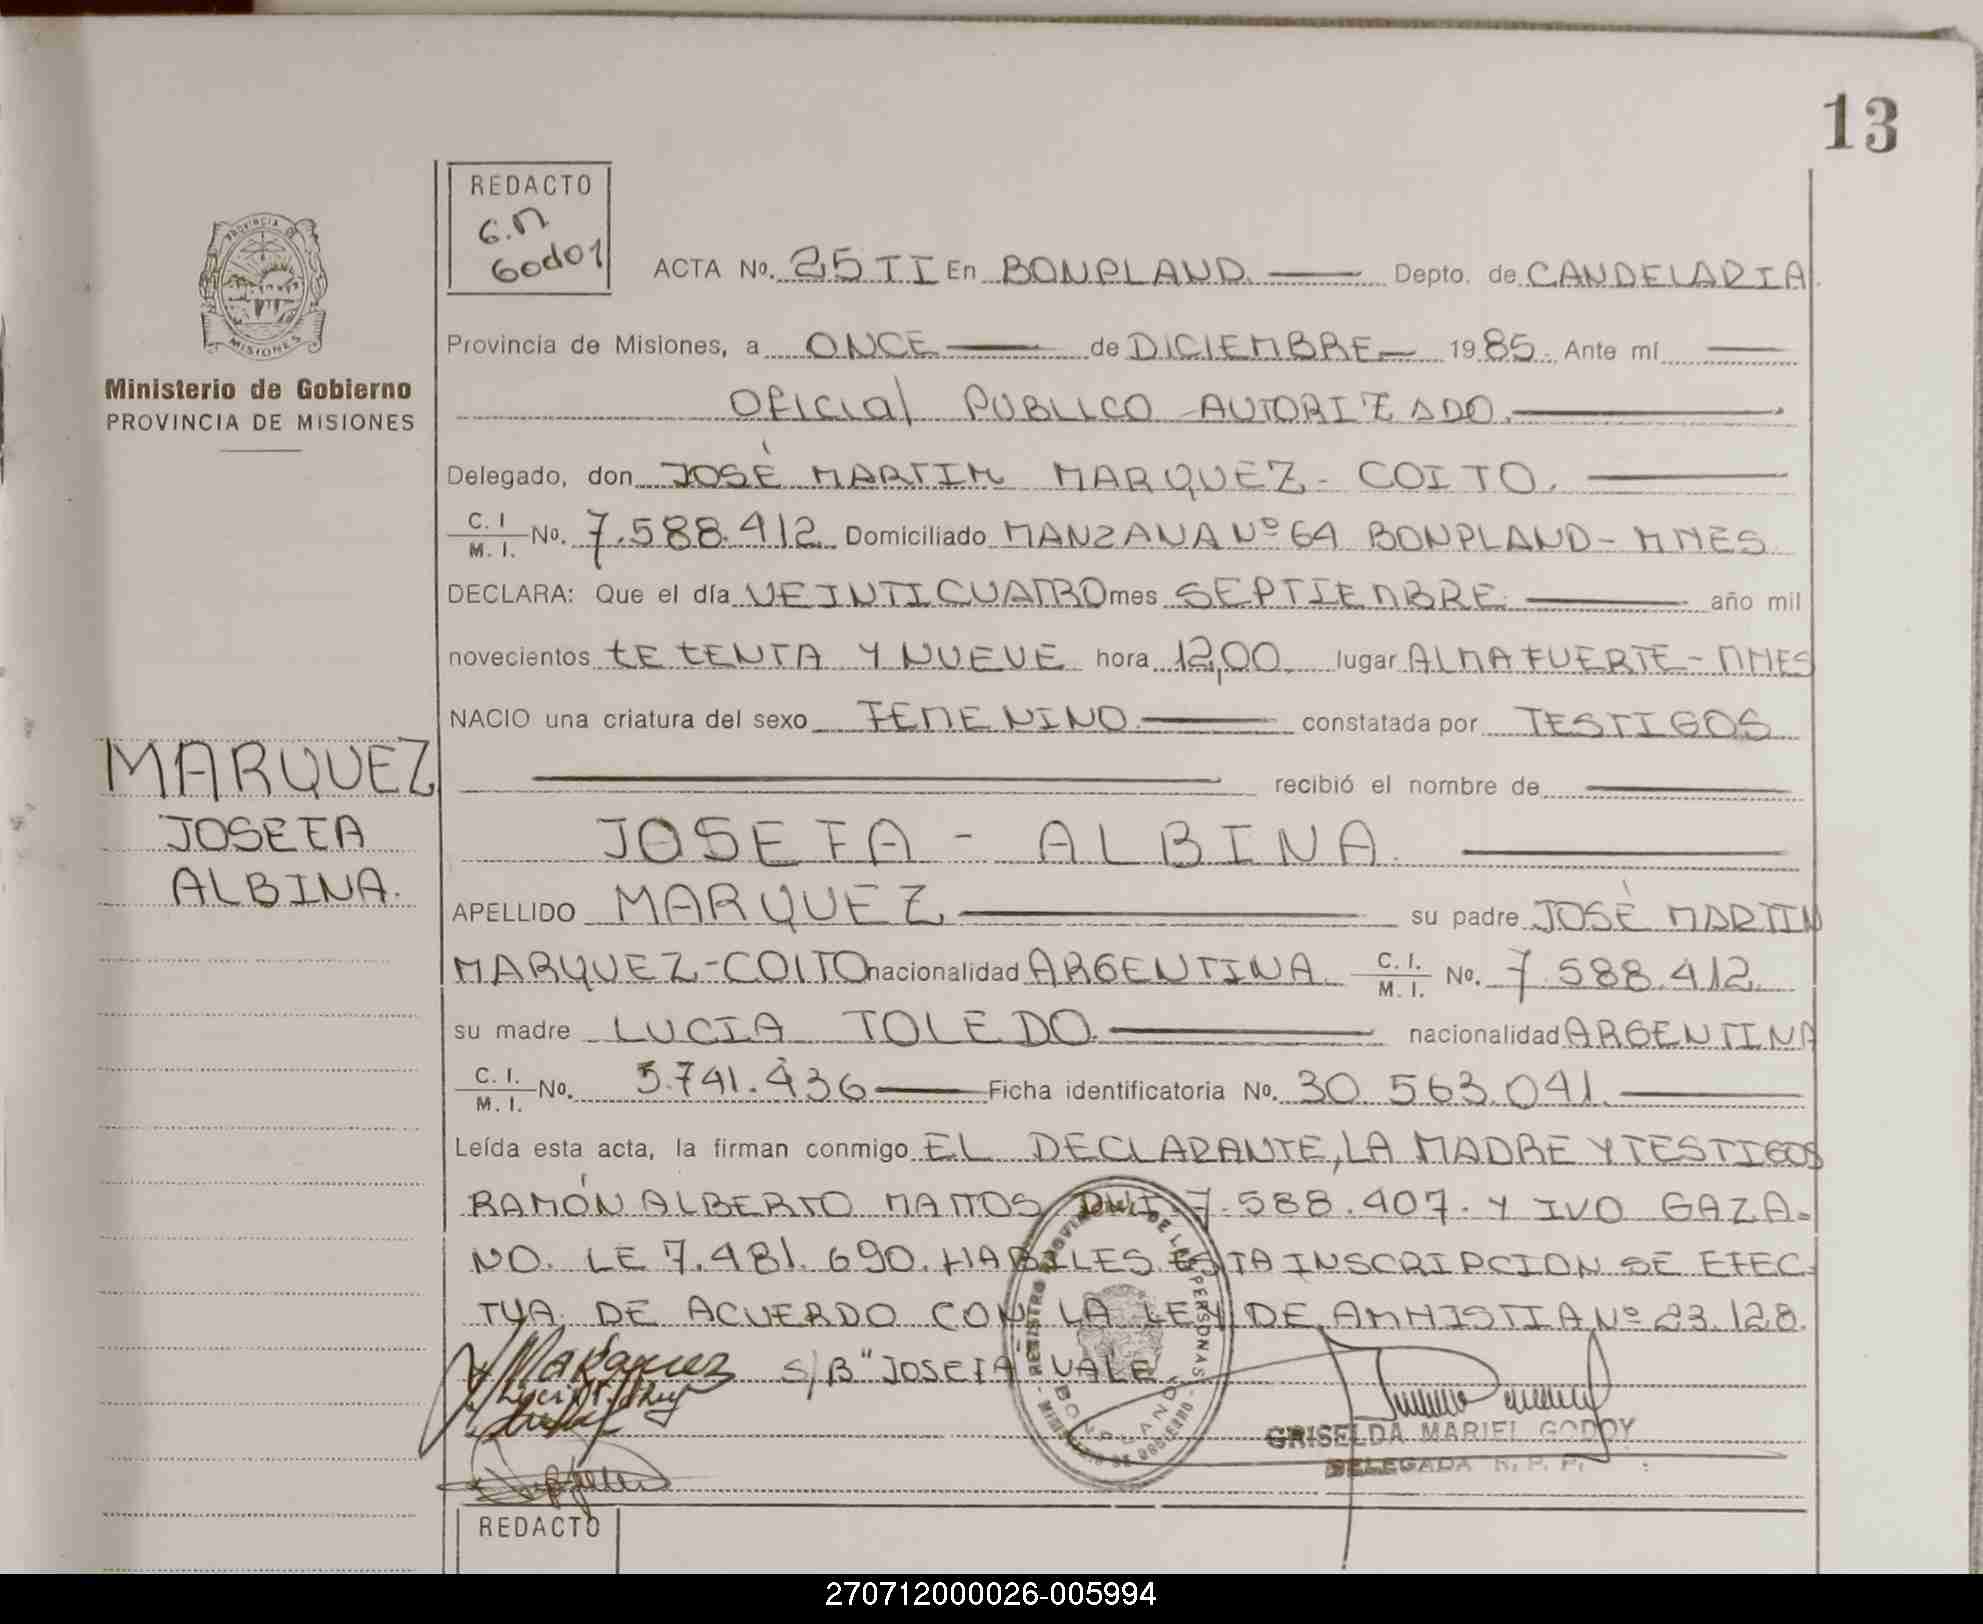 13
REDACTO
G.M
Godoy
ACTA No. 25 II En BONPLAND. Depto. de CANDELARIA
Provincia de Misiones, a ONCE de DICIEMBRE 1985. Ante mí
OFICIAL PUBLICO AUTORIZADO.
Delegado, don JOSÉ MARTIN MARQUEZ - COITO.
C. I. / M. I. No. 7.588.412 Domiciliado MANZANA Nº 64 BONPLAND - MNES
DECLARA: Que el día VEINTICUATRO mes SEPTIEMBRE año mil
novecientos SETENTA Y NUEVE hora 12,00 lugar ALMAFUERTE - MNES
NACIO una criatura del sexo FEMENINO constatada por TESTIGOS
recibió el nombre de
JOSEFA - ALBINA.
APELLIDO MARQUEZ su padre JOSÉ MARTIN
MARQUEZ-COITO nacionalidad ARGENTINA. C. I. / M. I. No. 7.588.412.
su madre LUCIA TOLEDO. nacionalidad ARGENTINA
C. I. / M. I. No. 5.741.436 Ficha identificatoria No. 30.563.041.
Leída esta acta, la firman conmigo EL DECLARANTE, LA MADRE Y TESTIGOS
RAMÓN ALBERTO MATTOS DNI 7.588.407. Y IVO GAZA-
NO. LE 7.481.690. HABILES ESTA INSCRIPCION SE EFEC-
TUA DE ACUERDO CON LA LEY DE AMNISTIA Nº 23.128.
S/B "JOSEFA VALE
Marquez
REGISTRO PROVINCIAL DE LAS PERSONAS
MINISTERIO DE GOBIERNO
BONPLAND
GRISELDA MARIEL GODOY
DELEGADA R. P. P.
REDACTO
PROVINCIA DE
MISIONES
Ministerio de Gobierno
PROVINCIA DE MISIONES
MARQUEZ
JOSEFA
ALBINA.
270712000026-005994